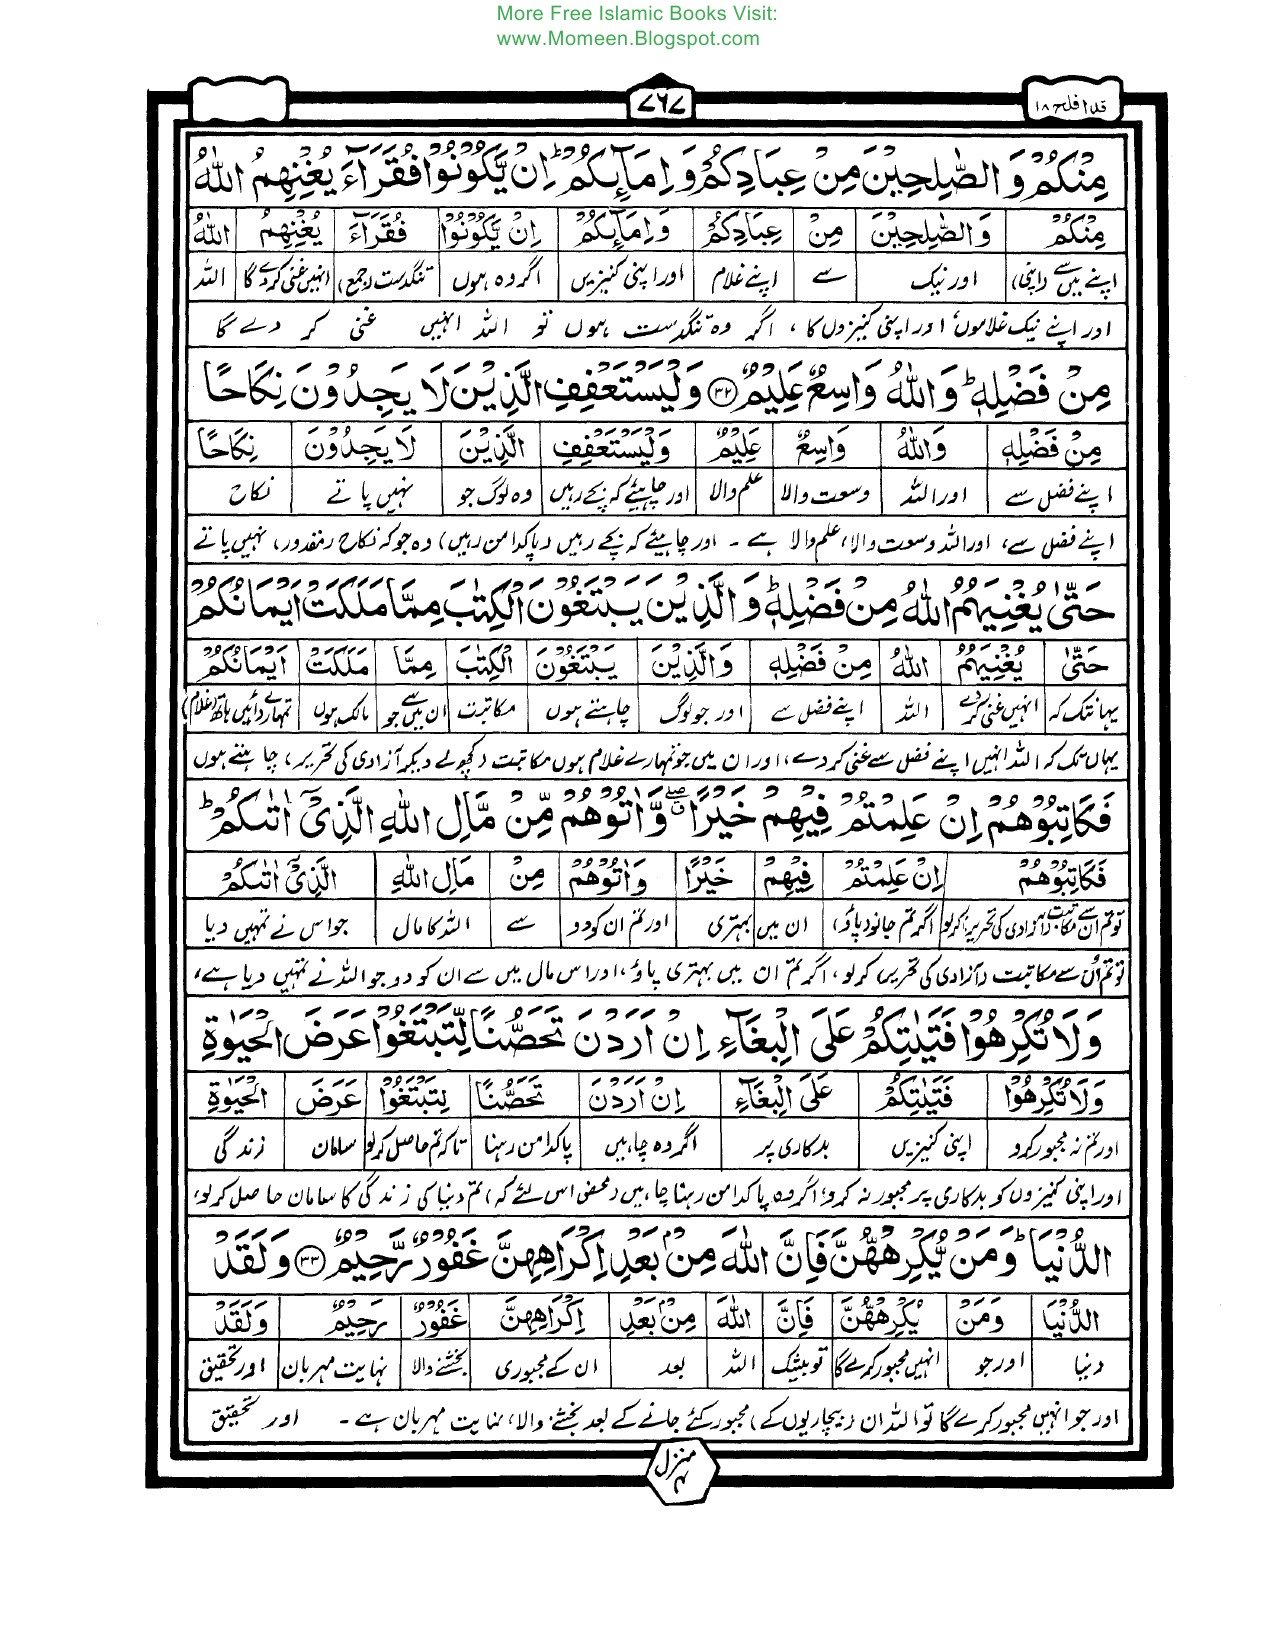 More Free Islamic Books Visit:
www.Momeen.Blogspot.com
قد افلح ۱۸
۷۶۷
مِنْكُمْ وَالصّٰلِحِيْنَ مِنْ عِبَادِكُمْ وَاِمَآئِكُمْ ؕ اِنْ يَّكُوْنُوْا فُقَرَآءَ يُغْنِهِمُ اللّٰهُ
مِنْكُمْ وَالصّٰلِحِيْنَ مِنْ عِبَادِكُمْ وَاِمَآئِكُمْ اِنْ يَّكُوْنُوْا فُقَرَآءَ يُغْنِهِمُ اللّٰهُ
اپنے میں سے (اپنی) اور نیک سے اپنے غلام اور اپنی کنیزیں اگر وہ ہوں تنگدست (جمع) انہیں غنی کردے گا اللہ
اور اپنے نیک غلاموں اور اپنی کنیزوں کا ، اگر وہ تنگدست ہوں تو اللہ انہیں غنی کر دے گا
مِنْ فَضْلِهٖ ؕ وَاللّٰهُ وَاسِعٌ عَلِيْمٌ ﴿۳۲﴾ وَلْيَسْتَعْفِفِ الَّذِيْنَ لَا يَجِدُوْنَ نِكَاحًا
مِنْ فَضْلِهٖ وَاللّٰهُ وَاسِعٌ عَلِيْمٌ وَلْيَسْتَعْفِفِ الَّذِيْنَ لَا يَجِدُوْنَ نِكَاحًا
اپنے فضل سے اور اللہ وسعت والا علم والا اور چاہیئے کہ بچے رہیں وہ لوگ جو نہیں پاتے نکاح
اپنے فضل سے، اور اللہ وسعت والا، علم والا ہے ۔ اور چاہیئے کہ بچے رہیں (پاکدامن رہیں) وہ جو کہ نکاح (مقدور) نہیں پاتے
حَتّٰى يُغْنِيَهُمُ اللّٰهُ مِنْ فَضْلِهٖ ؕ وَالَّذِيْنَ يَبْتَغُوْنَ الْكِتٰبَ مِمَّا مَلَكَتْ اَيْمَانُكُمْ
حَتّٰى يُغْنِيَهُمُ اللّٰهُ مِنْ فَضْلِهٖ وَالَّذِيْنَ يَبْتَغُوْنَ الْكِتٰبَ مِمَّا مَلَكَتْ اَيْمَانُكُمْ
یہانتک کہ انہیں غنی کردے اللہ اپنے فضل سے اور جو لوگ چاہتے ہوں مکاتبت ان میں سے جو مالک ہوں تمہارے دائیں ہاتھ (غلام)
یہاں تک کہ اللہ انہیں اپنے فضل سے غنی کردے، اور ان میں جو تمہارے غلام ہوں مکاتبت (کچھ لے دیکر آزادی کی تحریر) چاہتے ہوں
فَكَاتِبُوْهُمْ اِنْ عَلِمْتُمْ فِيْهِمْ خَيْرًا ۖ وَّاٰتُوْهُمْ مِّنْ مَّالِ اللّٰهِ الَّذِيْٓ اٰتٰىكُمْ ؕ
فَكَاتِبُوْهُمْ اِنْ عَلِمْتُمْ فِيْهِمْ خَيْرًا وَّاٰتُوْهُمْ مِنْ مَّالِ اللّٰهِ الَّذِيْٓ اٰتٰىكُمْ
تو تم ان سے مکاتبت (آزادی کی تحریر) کرلو اگر تم جانو (پاؤ) ان میں بہتری اور تم ان کو دو سے اللہ کا مال جو اس نے تمہیں دیا
تو تم ان سے مکاتبت (آزادی کی تحریر) کرلو، اگر تم ان میں بہتری پاؤ، اور اس مال میں سے ان کو دو جو اللہ نے تمہیں دیا ہے،
وَلَا تُكْرِهُوْا فَتَيٰتِكُمْ عَلَى الْبِغَآءِ اِنْ اَرَدْنَ تَحَصُّنًا لِّتَبْتَغُوْا عَرَضَ الْحَيٰوةِ
وَلَا تُكْرِهُوْا فَتَيٰتِكُمْ عَلَى الْبِغَآءِ اِنْ اَرَدْنَ تَحَصُّنًا لِتَبْتَغُوْا عَرَضَ الْحَيٰوةِ
اور تم نہ مجبور کرو اپنی کنیزیں بدکاری پر اگر وہ چاہیں پاکدامن رہنا تاکہ تم حاصل کرلو سامان زندگی
اور اپنی کنیزوں کو بدکاری پر مجبور نہ کرو، اگر وہ پاکدامن رہنا چاہیں (محض اس لئے کہ) تم دنیا کی زندگی کا سامان حاصل کرلو،
الدُّنْيَا ؕ وَمَنْ يُّكْرِهْهُّنَّ فَاِنَّ اللّٰهَ مِنْۢ بَعْدِ اِكْرَاهِهِنَّ غَفُوْرٌ رَّحِيْمٌ ﴿۳۳﴾ وَلَقَدْ
الدُّنْيَا وَمَنْ يُّكْرِهْهُّنَّ فَاِنَّ اللّٰهَ مِنْۢ بَعْدِ اِكْرَاهِهِنَّ غَفُوْرٌ رَّحِيْمٌ وَلَقَدْ
دنیا اور جو انہیں مجبور کرے گا تو بیشک اللہ بعد ان کے مجبوری بخشنے والا نہایت مہربان اور تحقیق
اور جو انہیں مجبور کرے گا تو اللہ ان (بیچاریوں کے) مجبور کئے جانے کے بعد بخشنے والا، نہایت مہربان ہے ۔ اور تحقیق
منزل ۴